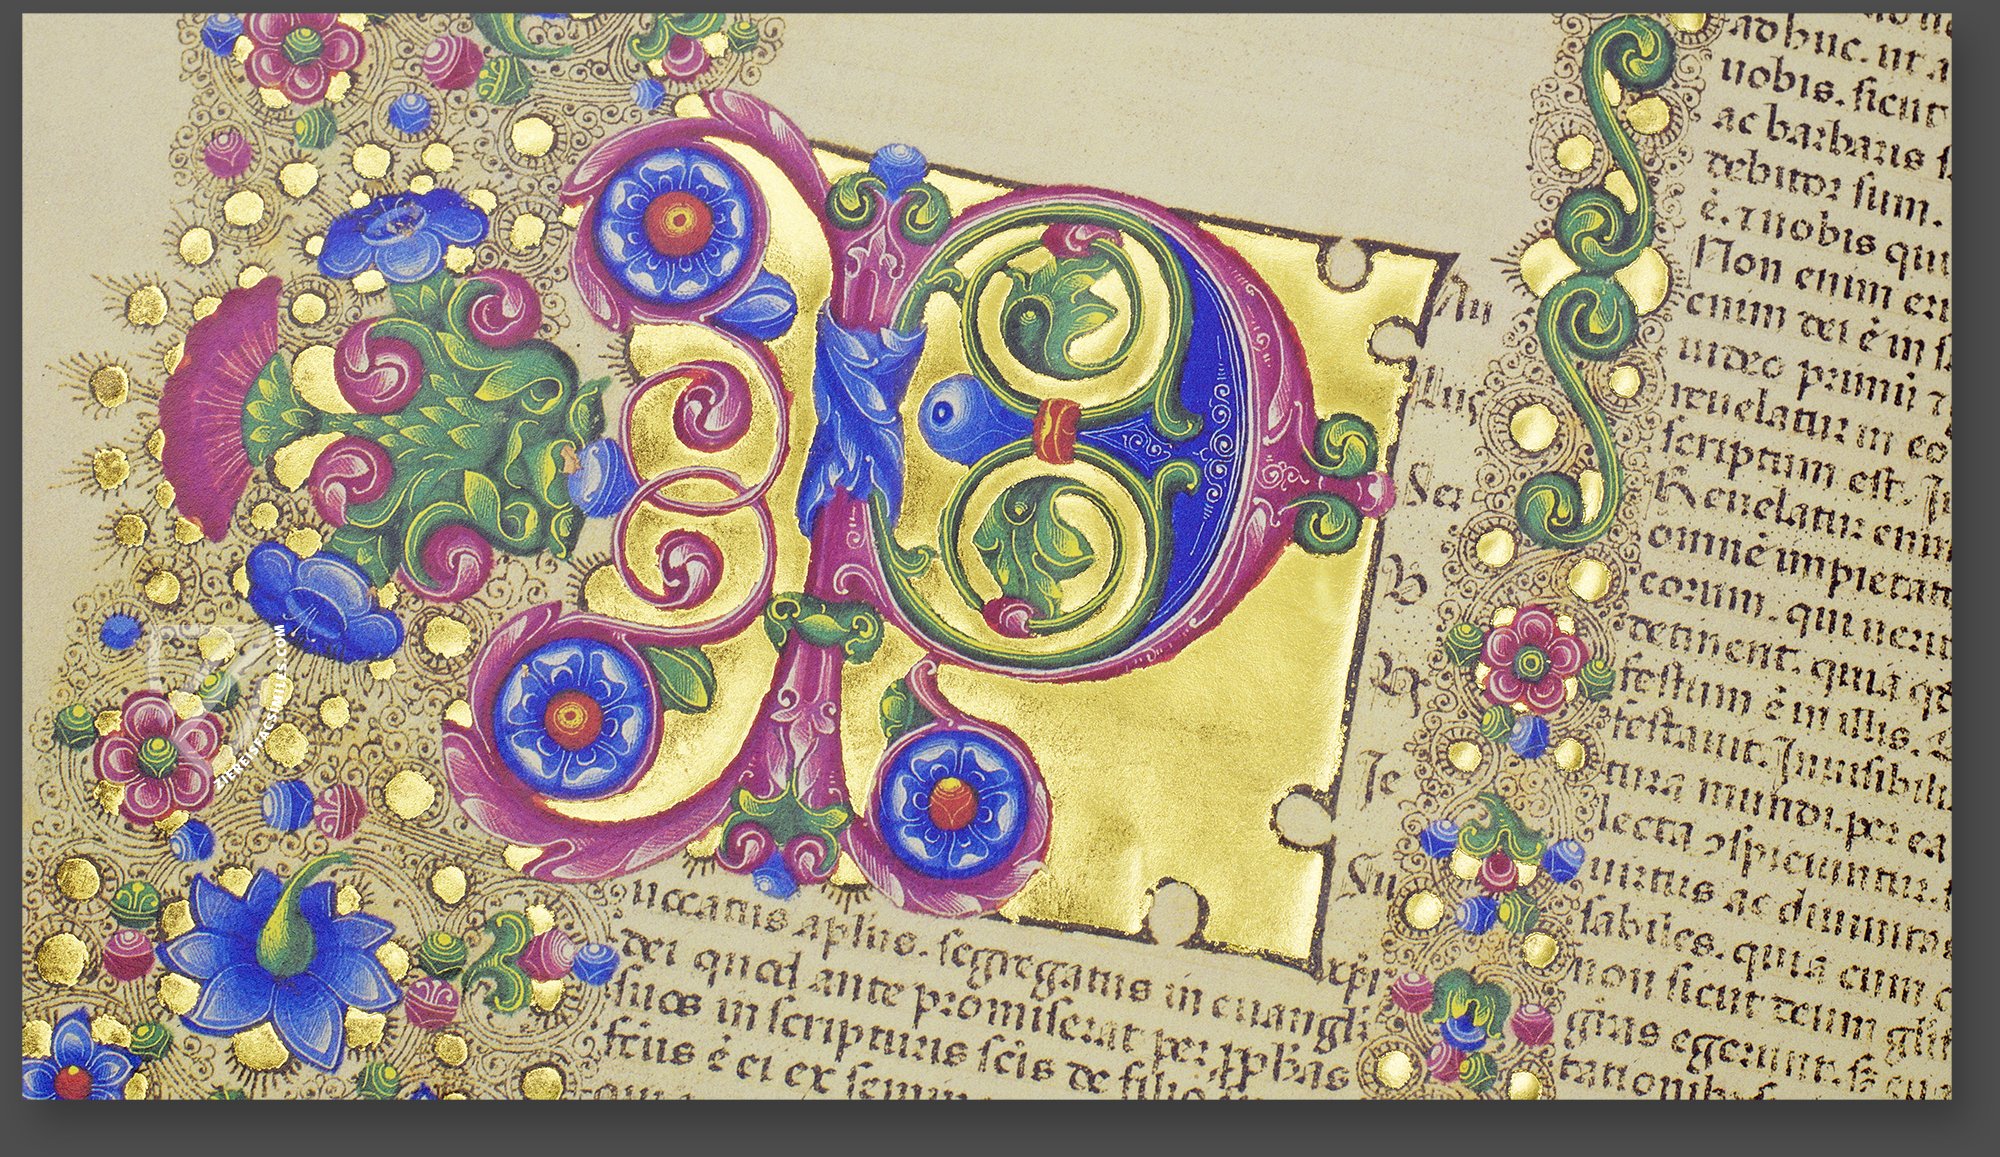 P
Au
lus
Ser
Je
Su
xpi
uccatus aplus. segregatus in euangli
dei quod ante promiserat per pphas
suos in scripturis scis de filio
fctus ē ei ex semin
adhuc. ut a
uobis. sicut
ac barbaris s
debitor sum.
ē. ⁊ uobis qui
Non enim eru
enim dei ē in s
iudeo primū ⁊
reuelatur in eo
scriptum est. Ju
Reuelatur enim
omnē impietate
eorum. qui uerit
detinent. quia qd
festum ē in illis.
festauit. Inuisibili
tura mundi. per ea
lecta ꝯspiciuntur.
uirtus ac diuinitas
sabiles. quia cum c
non sicut deum glif
gras egerunt. sꝫ eua
tationib
ZIEREISFACSIMILES.COM